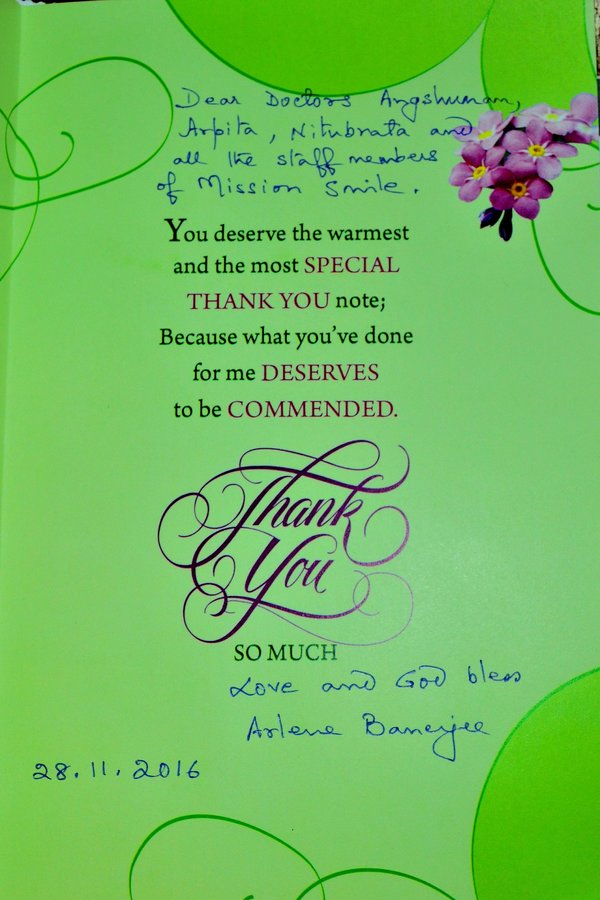 Dear Doctors Angshuman,
Arpita, Nitubrata and
all the staff members
of Mission Smile.
You deserve the warmest
and the most SPECIAL
THANK YOU note;
Because what you've done
for me DESERVES
to be COMMENDED.
Thank
You
SO MUCH
Love and God bless
Arlene Banerjee
28.11.2016